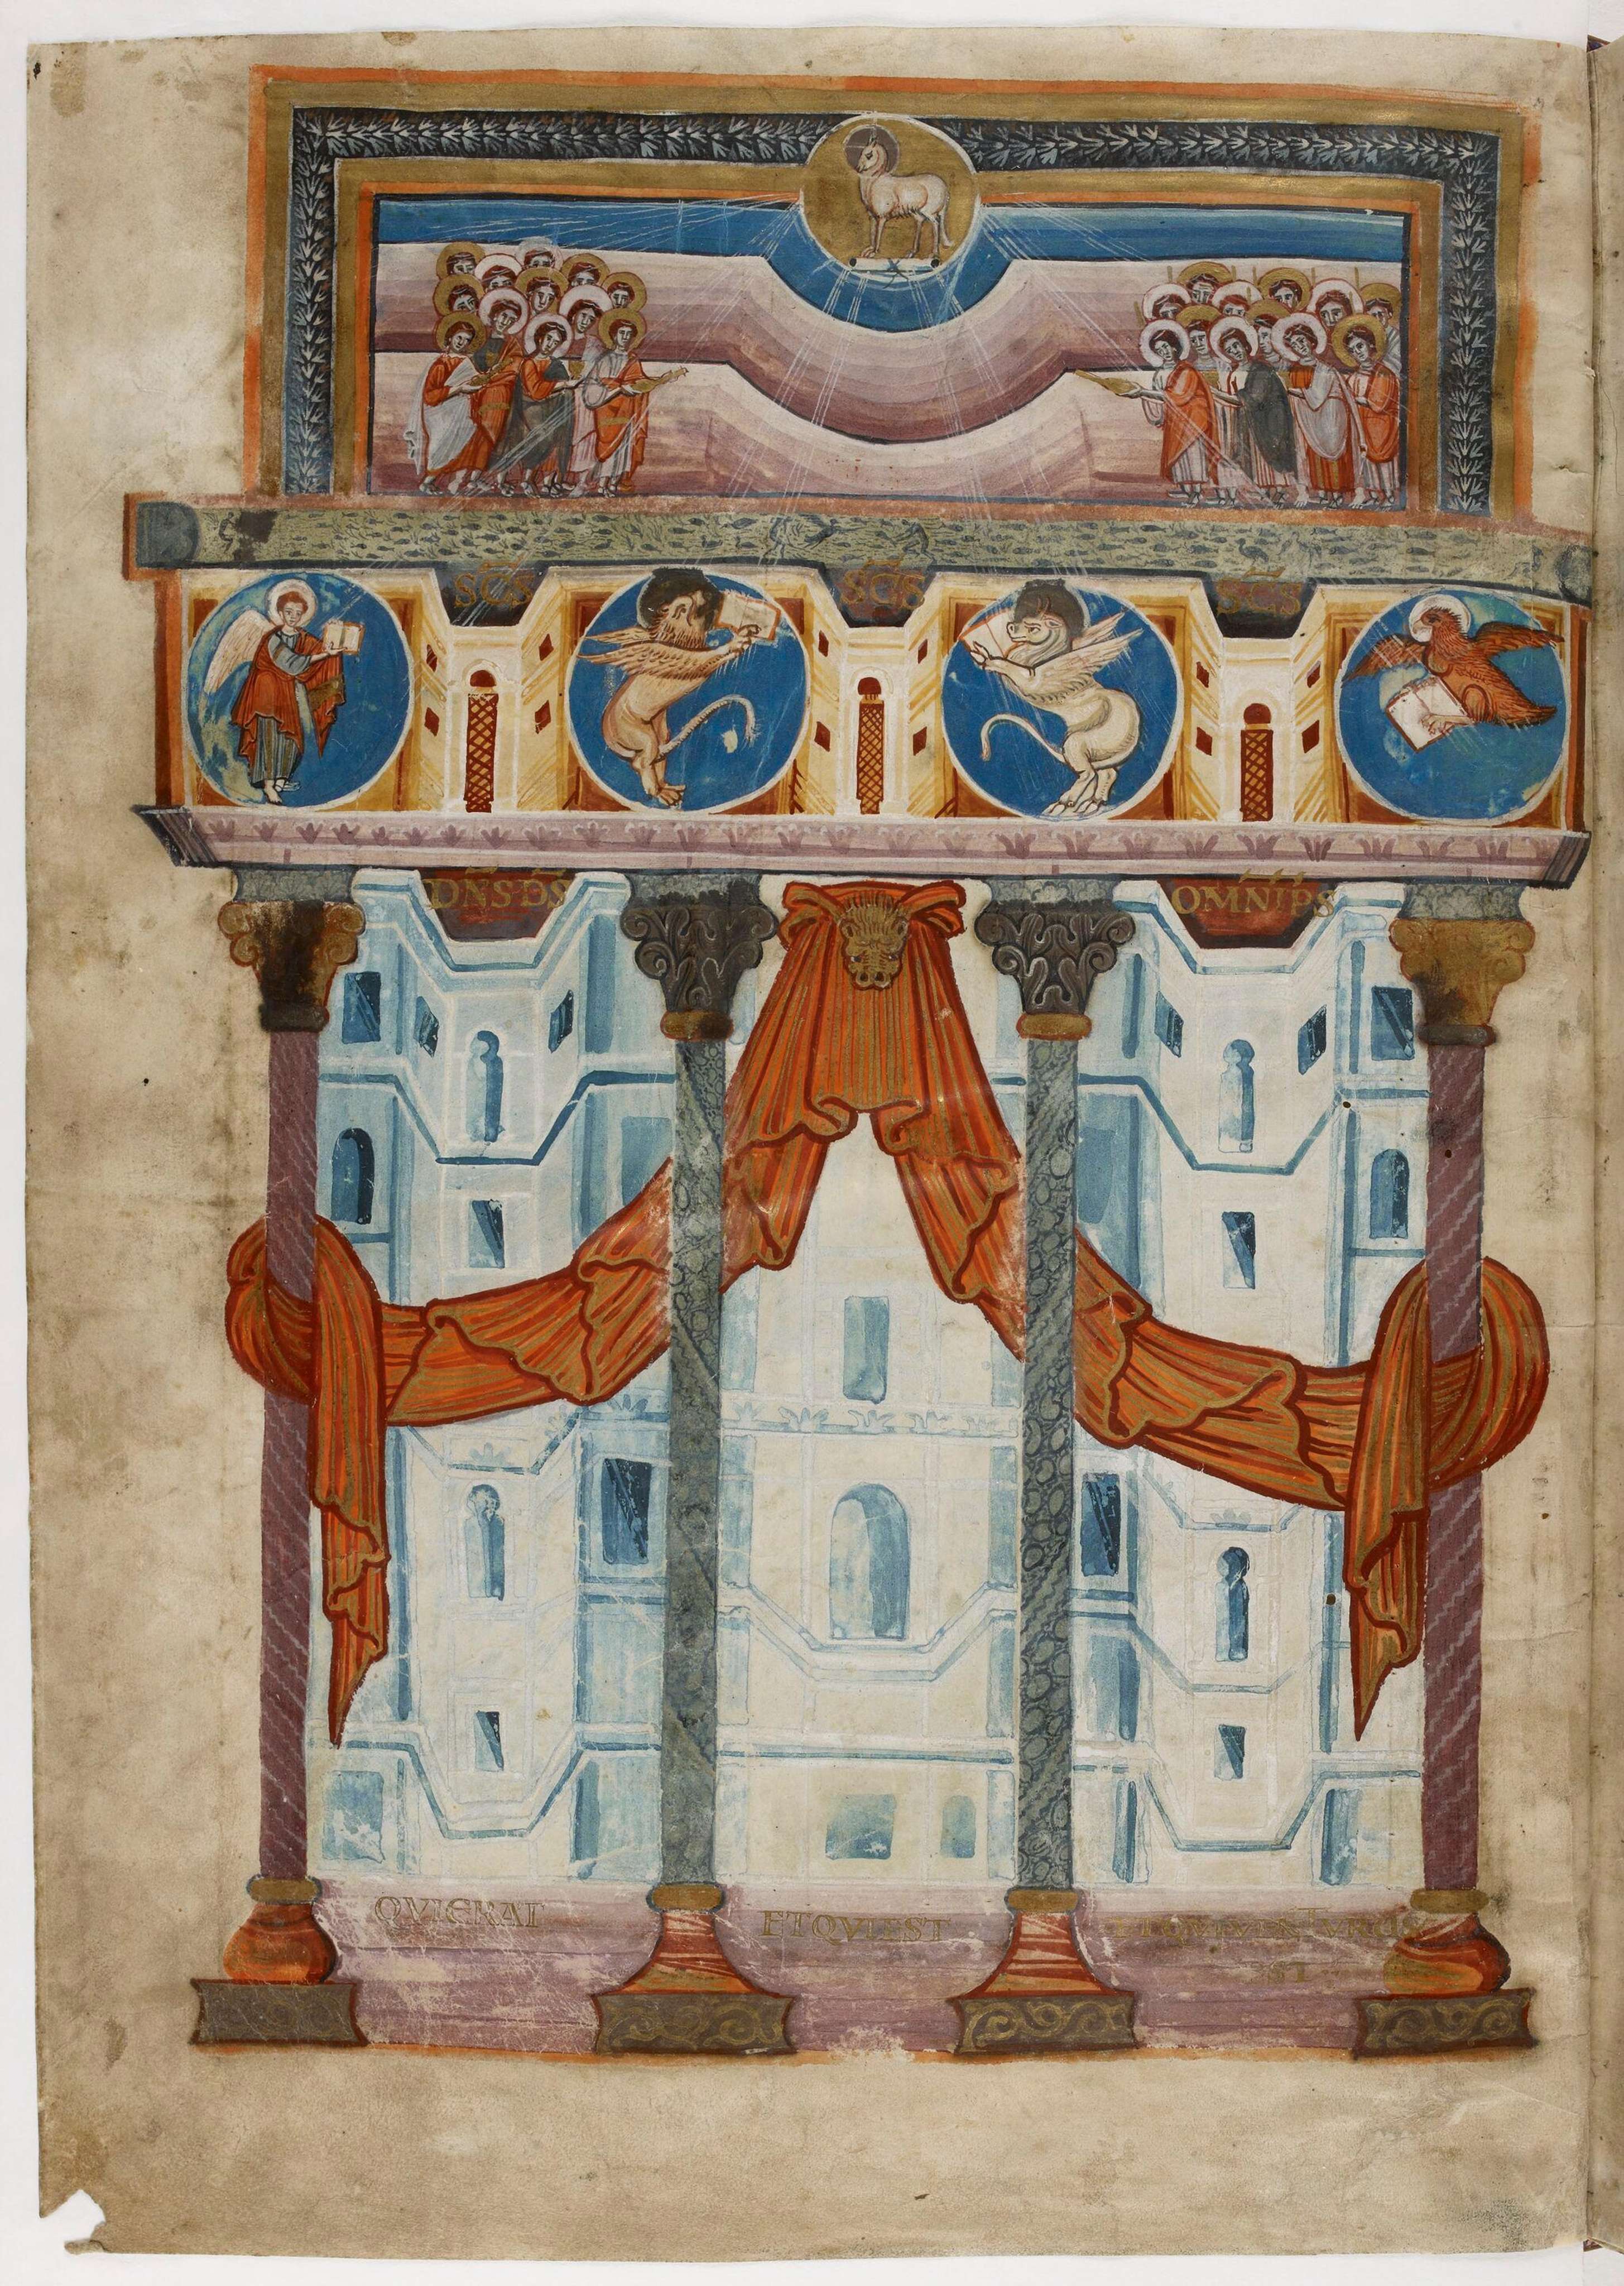 SC̅S SC̅S SC̅S
DN̅S D̅S OMNIP̅S
QVI ERAT ET QVI EST ET QVI VENTVRUS
EST